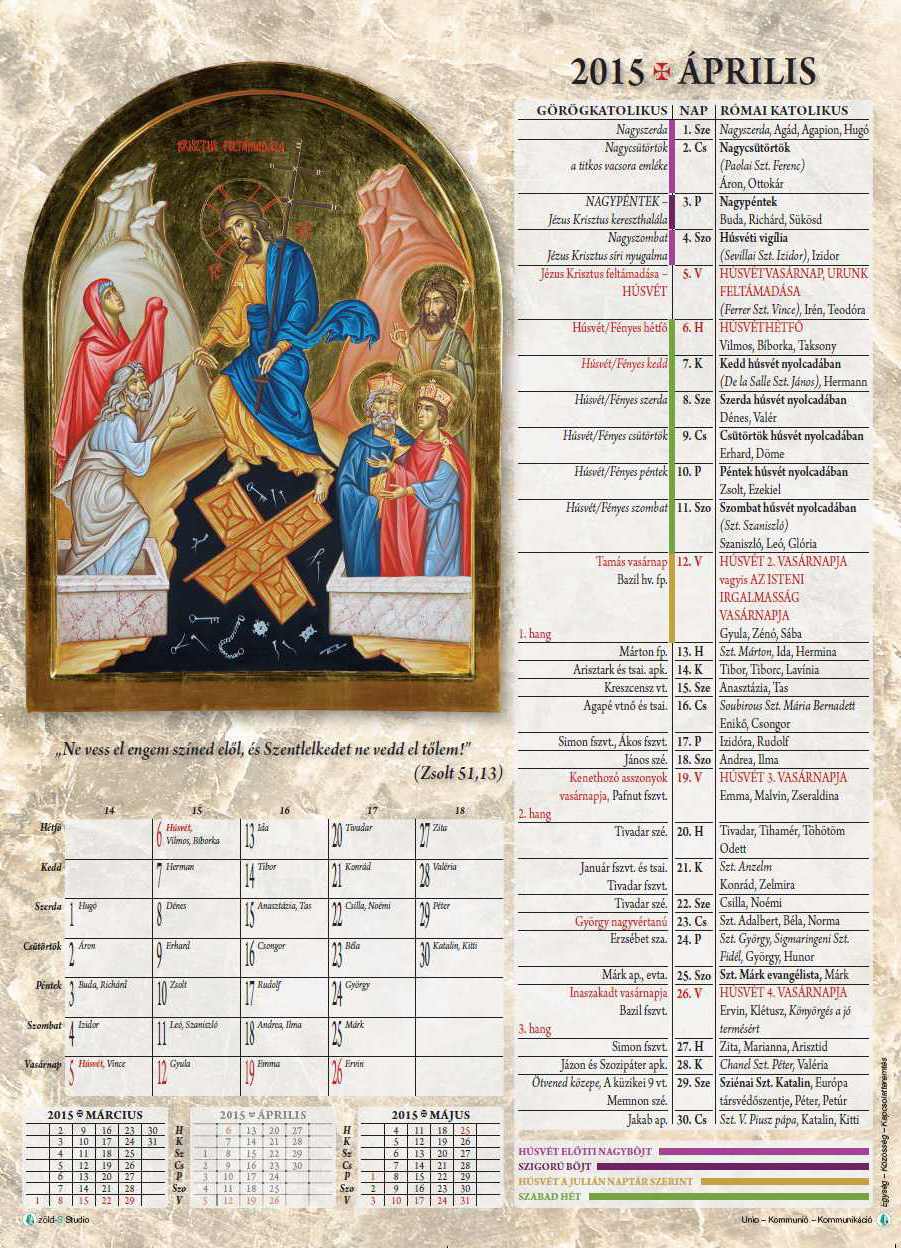 2015 ✠ ÁPRILIS
KRISZTUS FELTÁMADÁSA
„Ne vess el engem színed elől, és Szentlelkedet ne vedd el tőlem!”
(Zsolt 51,13)
GÖRÖGKATOLIKUS NAP RÓMAI KATOLIKUS
Nagyszerda 1. Sze Nagyszerda, Agád, Agapion, Hugó
Nagycsütörtök 2. Cs Nagycsütörtök
a titkos vacsora emléke (Paolai Szt. Ferenc)
Áron, Ottokár
NAGYPÉNTEK – 3. P Nagypéntek
Jézus Krisztus kereszthalála Buda, Richárd, Sükösd
Nagyszombat 4. Szo Húsvéti vigília
Jézus Krisztus síri nyugalma (Sevillai Szt. Izidor), Izidor
Jézus Krisztus feltámadása – 5. V HÚSVÉTVASÁRNAP, URUNK
HÚSVÉT FELTÁMADÁSA
(Ferrer Szt. Vince), Irén, Teodóra
Húsvét/Fényes hétfő 6. H HÚSVÉTHÉTFŐ
Vilmos, Bíborka, Taksony
Húsvét/Fényes kedd 7. K Kedd húsvét nyolcadában
(De la Salle Szt. János), Hermann
Húsvét/Fényes szerda 8. Sze Szerda húsvét nyolcadában
Dénes, Valér
Húsvét/Fényes csütörtök 9. Cs Csütörtök húsvét nyolcadában
Erhard, Döme
Húsvét/Fényes péntek 10. P Péntek húsvét nyolcadában
Zsolt, Ezekiel
Húsvét/Fényes szombat 11. Szo Szombat húsvét nyolcadában
(Szt. Szaniszló)
Szaniszló, Leó, Glória
Tamás vasárnap 12. V HÚSVÉT 2. VASÁRNAPJA
Bazil hv. fp. vagyis AZ ISTENI
IRGALMASSÁG
VASÁRNAPJA
1. hang Gyula, Zénó, Sába
Márton fp. 13. H Szt. Márton, Ida, Hermina
Arisztark és tsai. apk. 14. K Tibor, Tiborc, Lavínia
Kreszcensz vt. 15. Sze Anasztázia, Tas
Agapé vtnő és tsai. 16. Cs Soubirous Szt. Mária Bernadett
Enikő, Csongor
Simon fszvt., Ákos fszvt. 17. P Izidóra, Rudolf
János szé. 18. Szo Andrea, Ilma
Kenethozó asszonyok 19. V HÚSVÉT 3. VASÁRNAPJA
vasárnapja, Pafnut fszvt. Emma, Malvin, Zseraldina
2. hang
Tivadar szé. 20. H Tivadar, Tihamér, Töhötöm
Odett
Január fszvt. és tsai. 21. K Szt. Anzelm
Tivadar fszvt. Konrád, Zelmira
Tivadar szé. 22. Sze Csilla, Noémi
György nagyvértanú 23. Cs Szt. Adalbert, Béla, Norma
Erzsébet sza. 24. P Szt. György, Sigmaringeni Szt.
Fidél, György, Hunor
Márk ap., evta. 25. Szo Szt. Márk evangélista, Márk
Inaszakadt vasárnapja 26. V HÚSVÉT 4. VASÁRNAPJA
Bazil fszvt. Ervin, Klétusz, Könyörgés a jó
3. hang termésért
Simon fszvt. 27. H Zita, Marianna, Arisztid
Jázon és Szozipáter apk. 28. K Chanel Szt. Péter, Valéria
Ötvened közepe, A küzikei 9 vt. 29. Sze Sziénai Szt. Katalin, Európa
Memnon szé. társvédőszentje, Péter, Petúr
Jakab ap. 30. Cs Szt. V. Piusz pápa, Katalin, Kitti
HÚSVÉT ELŐTTI NAGYBÖJT
SZIGORÚ BÖJT
HÚSVÉT A JULIÁN NAPTÁR SZERINT
SZABAD HÉT
14 15 16 17 18
Hétfő 6 Húsvét, Vilmos, Bíborka 13 Ida 20 Tivadar 27 Zita
Kedd 7 Herman 14 Tibor 21 Konrád 28 Valéria
Szerda 1 Hugó 8 Dénes 15 Anasztázia, Tas 22 Csilla, Noémi 29 Péter
Csütörtök 2 Áron 9 Erhard 16 Csongor 23 Béla 30 Katalin, Kitti
Péntek 3 Buda, Richárd 10 Zsolt 17 Rudolf 24 György
Szombat 4 Izidor 11 Leó, Szaniszló 18 Andrea, Ilma 25 Márk
Vasárnap 5 Húsvét, Vince 12 Gyula 19 Emma 26 Ervin
2015 ✠ MÁRCIUS
2 9 16 23 30
3 10 17 24 31
4 11 18 25
5 12 19 26
6 13 20 27
7 14 21 28
1 8 15 22 29
2015 ✠ ÁPRILIS
H 6 13 20 27 H
K 7 14 21 28 K
Sz 1 8 15 22 29 Sz
Cs 2 9 16 23 30 Cs
P 3 10 17 24 P
Szo 4 11 18 25 Szo
V 5 12 19 26 V
2015 ✠ MÁJUS
4 11 18 25
5 12 19 26
6 13 20 27
7 14 21 28
1 8 15 22 29
2 9 16 23 30
3 10 17 24 31
zöld-S Studio
Unio – Kommunió – Kommunikáció
Egység – Közösség – Kapcsolatteremtés